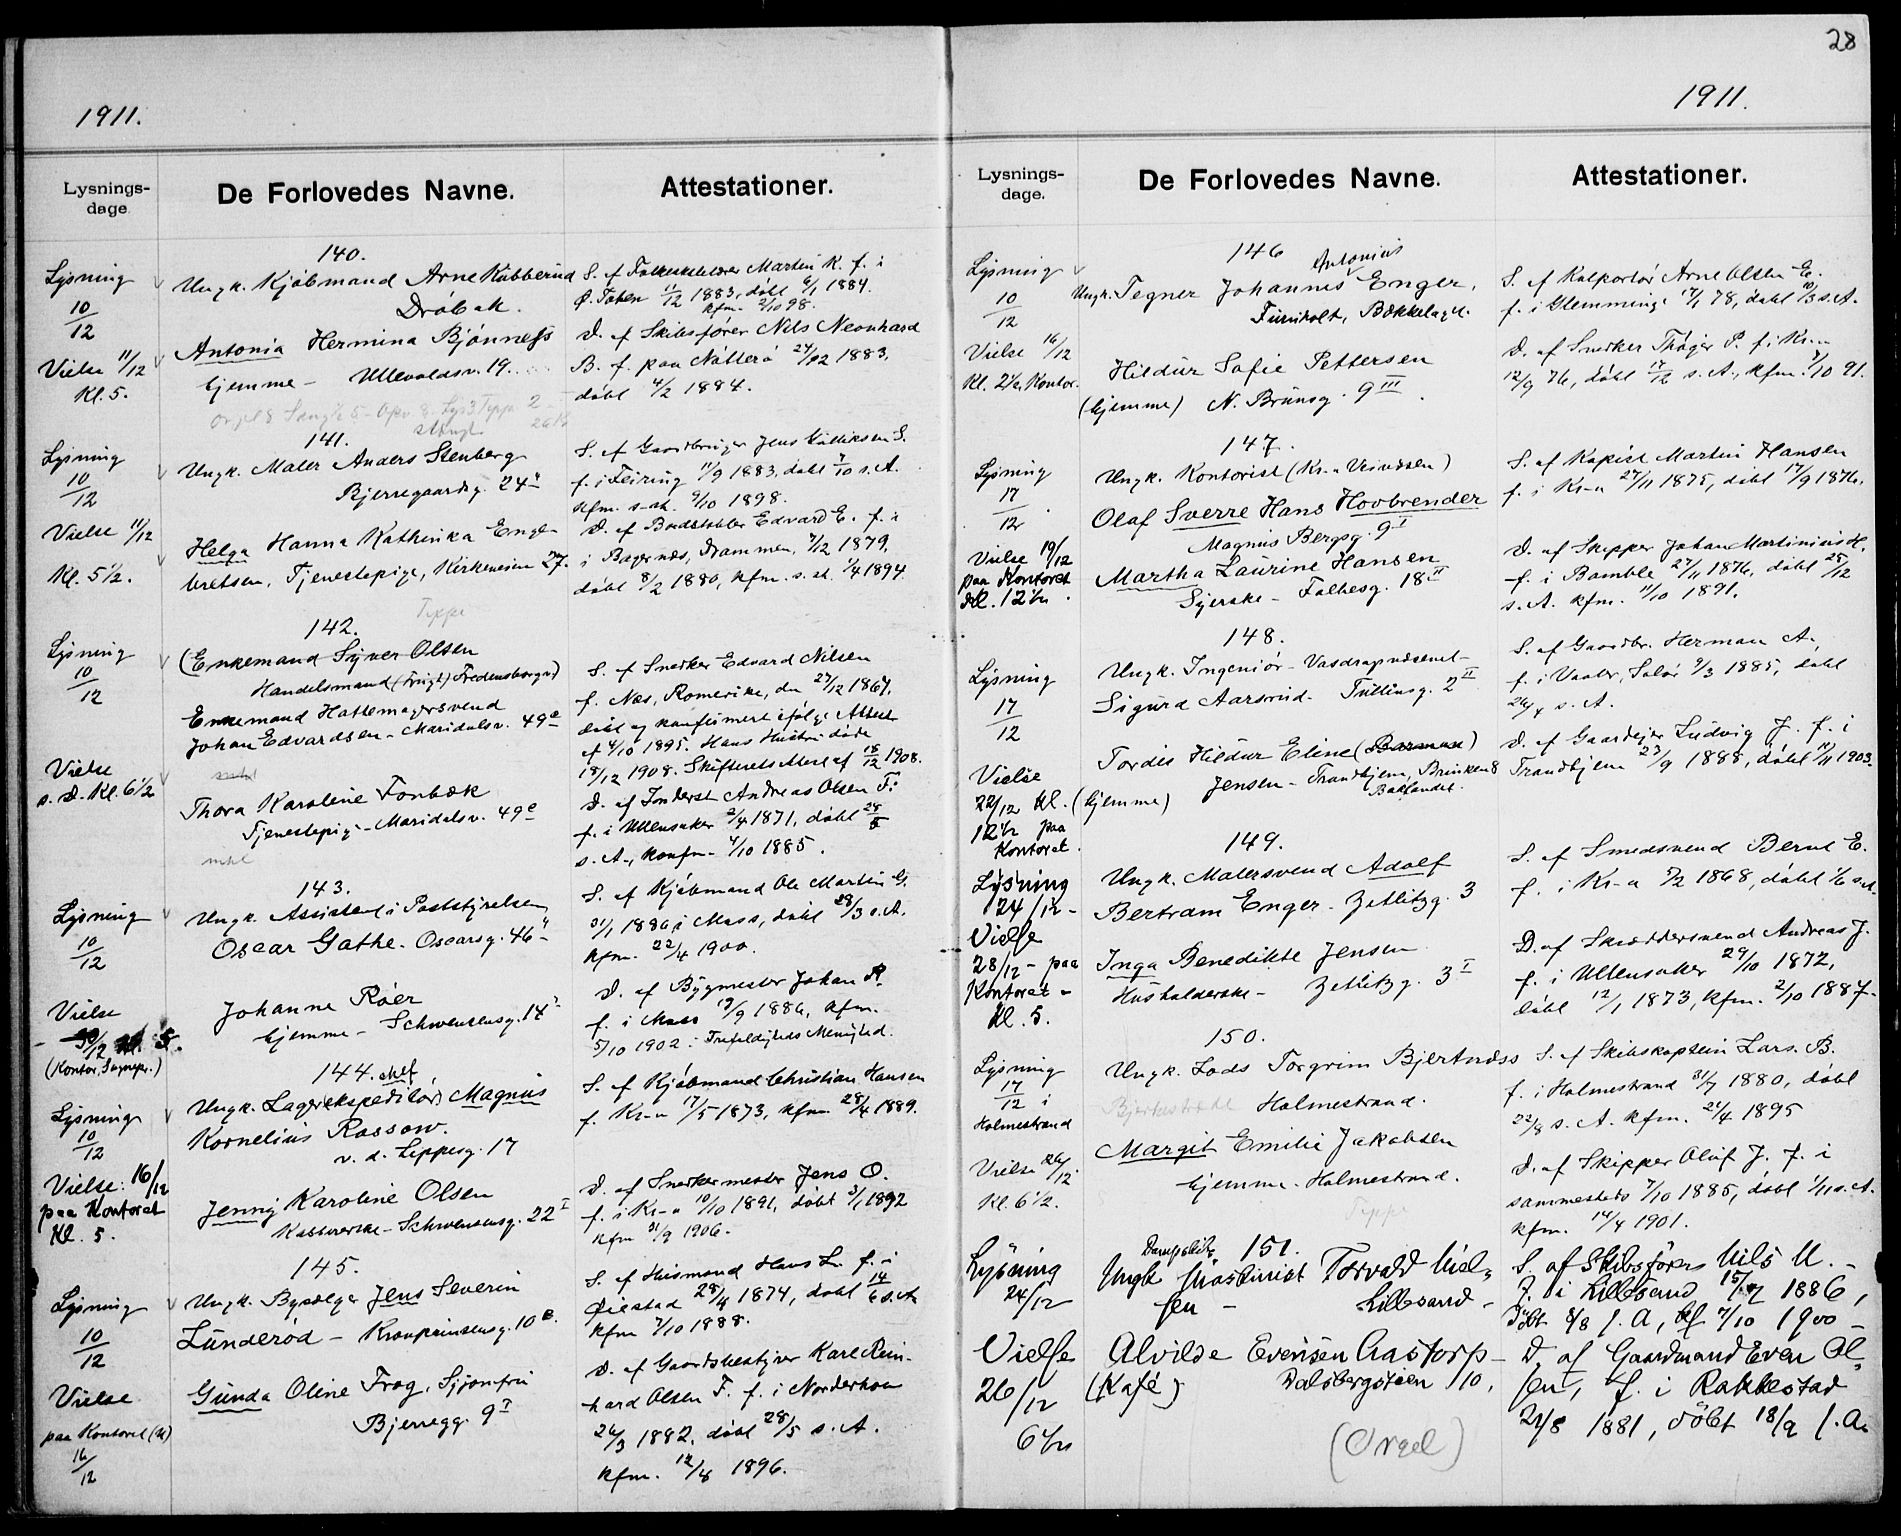 28
1911.
Lysnings-
dage
De Forlovedes Navne.
Attestationer.
140.
Lysning
10/12
Vielse 11/12
Kl. 5.
Ungk. Kjøbmand Arne Kubberud
Drøbak.
Antonia Hermina Bjønness
hjemme - Ullevoldsv. 19.
S. af Folkeskolelærer Martin K. f. i
Ø. Toten 11/12 1883, døbt 6/1 1884.
kfm. 2/10 98.
D. af Skibsfører Nils Neonhard
B. f. paa Nøtterø 24/12 1883,
døbt 4/2 1884.
141.
Lysning
10/12
Vielse 11/12
Kl. 5½.
Ungk. Maler Anders Stenberg
Bjerregaardsg. 24
Helga Hanna Kathinka Enge-
bretsen, Tjenestepige, Kirkeveien 27.
S. af Gaardbruger Jens Gulliksen S.
f. i Feiring 11/9 1883, døbt 7/10 s. A.
kfm. s. st. 9/10 1898.
D. af Bødstabler Edvard E. f. i
i Bagernæs, Drammen, 7/12 1879,
døbt 8/2 1880, kfm. s. st. 1/4 1894.
Teppe
142.
Lysning
10/12
Vielse
s. D. Kl. 6½
(Enkemand Syver Olsen
Handelsmand (Frugt) Fredensborgv.)
Enkemand Hattemagersvend
Johan Edvardsen - Maridalsv. 49e
Thora Karoline Fonbæk
Tjenestepige - Maridalsv. 49e
S. af Snedker Edvard Nilsen
f. Nes, Romerike, den 27/12 1867,
døbt og konfirmert ifølge Attest
af 4/10 1895. Hans Hustru døde
18/12 1908. Skifterets Attest af 18/12 1908.
D. af Inderst Andreas Olsen F.
f. i Ullensaker 2/4 1871, døbt 28/5
s. A., konfm. 4/10 1885.
143.
Lysning
10/12
Vielse
Kl. 5.
(Kontor, Sognepr.)
Ungk. Assistent i Poststyrelsen
Oscar Gathe - Oscarsg. 46
Johanne Røer
hjemme - Schwensensg. 14
S. af Kjøbmand Ole Martin G.
31/1 1886 i Moss, døbt 28/3 s. A.
kfm. 22/4 1900.
D. af Bygmester Johan R.
f. i Moss 19/9 1886, kfm.
5/10 1902 i Trefoldigheds Menighed.
144.
Lysning
10/12
Vielse: 16/12
paa Kontoret
Kl. 5.
Ungk. Lagerekspeditør Magnus
Kornelius Rossow.
v. d. Lippesg. 17
Jenny Karoline Olsen
Schwensensg. 22 I
S. af Kjøbmand Christian Hansen
f. Kr.a 17/5 1873, kfm. 28/4 1889.
D. af Snedkermester Jens O.
f. i Kr.a 10/10 1891, døbt 3/1 1892
kfm 31/9 1906.
145.
Lysning
10/12
Vielse
paa Kontoret (U)
16/12
Ungk. Bysælger Jens Severin
Lunderød - Kronprinsensg. 10 e.
Gunda Oline Frog, Sypige
Bjerregg. 9 I
S. af Husmand Hans L. f. i
Øiestad 28/4 1874, døbt 14/6 s. A.
kfm 7/10 1888.
D. af Gaardsbestyrer Karl Rein-
hard Olsen F. f. i Norderhov
26/3 1882, døbt 28/5 s. A.
kfm. 12/4 1896.
1911.
Lysnings-
dage.
De Forlovedes Navne.
Attestationer.
146
Lysning
10/12
Vielse 16/12
Kl. 2½, Kontor.
Antonius
Ungk. Tegner Johannes Enger,
Furuholt, Bækkelaget.
Hildur Sofie Pettersen
(hjemme) N. Brunsg. 9 III
S. af Kolportør Arne Olsen E.
f. i Glemminge 17/1 78, døbt 10/3 s. A.
D. af Snedker Thøger P. f. i Kr.a
12/9 76, døbt 17/12 s. A., kfm. 7/10 91.
147.
Lysning
17/12
Vielse 19/12
paa Kontoret
Kl. 12½.
Ungk. Kontorist (Kr.a Veivæsen)
Olaf Sverre Hans Hovbrender
Magnus Bergsg. 9 I
Martha Laurine Hansen
Syerske - Falbesg. 18 II
S. af Kopist Martin Hansen
f. i Kr.a 27/11 1875, døbt 17/9 1876.
D. af Skipper Johan Martinius H.
f. i Bamble 27/11 1876, døbt 25/12
s. A. kfm. 11/10 1891.
148.
Lysning
17/12
Vielse
22/12 Kl.
12½ paa
Kontoret.
Ungk. Ingeniør - Vasdragsvæsenet -
Sigurd Aarsrud - Tullinsg. 2 II
Tordis Hildur Eline
(hjemme) Jensen - Trondhjem, Brinken 8
Baklandet.
S. af Gaardbr. Herman A,
f. i Vaaler, Solør 9/3 1885, døbt
26/4 s. A.
D. af Gaardejer Ludvig J. f. i
Trondhjem 23/9 1888, døbt 11/11 1903.
149.
Lysning
24/12 -
Vielse
28/12 - paa
Kontoret -
Kl. 5.
Ungk. Malersvend Adolf
Bertram Enger - Zetlitzg. 3
Inga Benedikte Jensen
Husholderske - Zetlitzg. 3 I
S. af Smedsvend Bernt E.
f. i Kr.a 5/2 1868, døbt 1/6 s. A.
D. af Skræddersvend Andreas J.
f. i Ullensaker 29/10 1872,
døbt 12/1 1873, kfm. 2/10 1887-
150.
Lysning
17/12 i
Holmestrand
Vielse 26/12
Kl. 6½.
Ungk. Lods Torgrim Bjertnæss
Holmestrand.
Margit Emilie Jakobsen
hjemme - Holmestrand.
Teppe
S. af Skibskaptein Lars. B.
f. i Holmestrand 31/7 1880, døbt
22/8 s. A. kfm. 21/4 1895
D. af Skipper Oluf J. f. i
sammesteds 7/10 1885, døbt 1/11 s. A.
kfm. 14/4 1901.
151.
Lysning
24/12
Vielse
26/12
6½
Dampskibs
Ungk Maskinist Torvald Niel-
sen - Lillesand -
Alvilde Evensen Aastorp -
(Kafé) Dalsbergstien 10,
(Orgel)
S. af Skibsfører Nils N. -
f. i Lillesand 15/7 1886,
døbt 8/8 s. A, kf 7/10 1900 -
D. af Gaardmand Even Ol-
sen, f. i Rakkestad
21/8 1881, døbt 18/9 s. A.